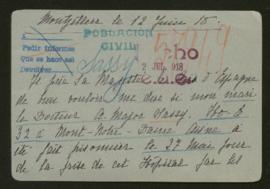 Montpellier le 12 Juin 18.
POBLACION CIVIL
A
Pedir informes
Que se haga así
Devolver
2 JUL 918
Je prie Sa Majesté d'Espagne
de bien vouloir me dire si mon mari
le Docteur A. Major Sassy. Ho E
32 à Mont-Notre-Dame Aisne a
été fait prisonnier le 27 Mai jour
de la prise de cet Hôpital par les